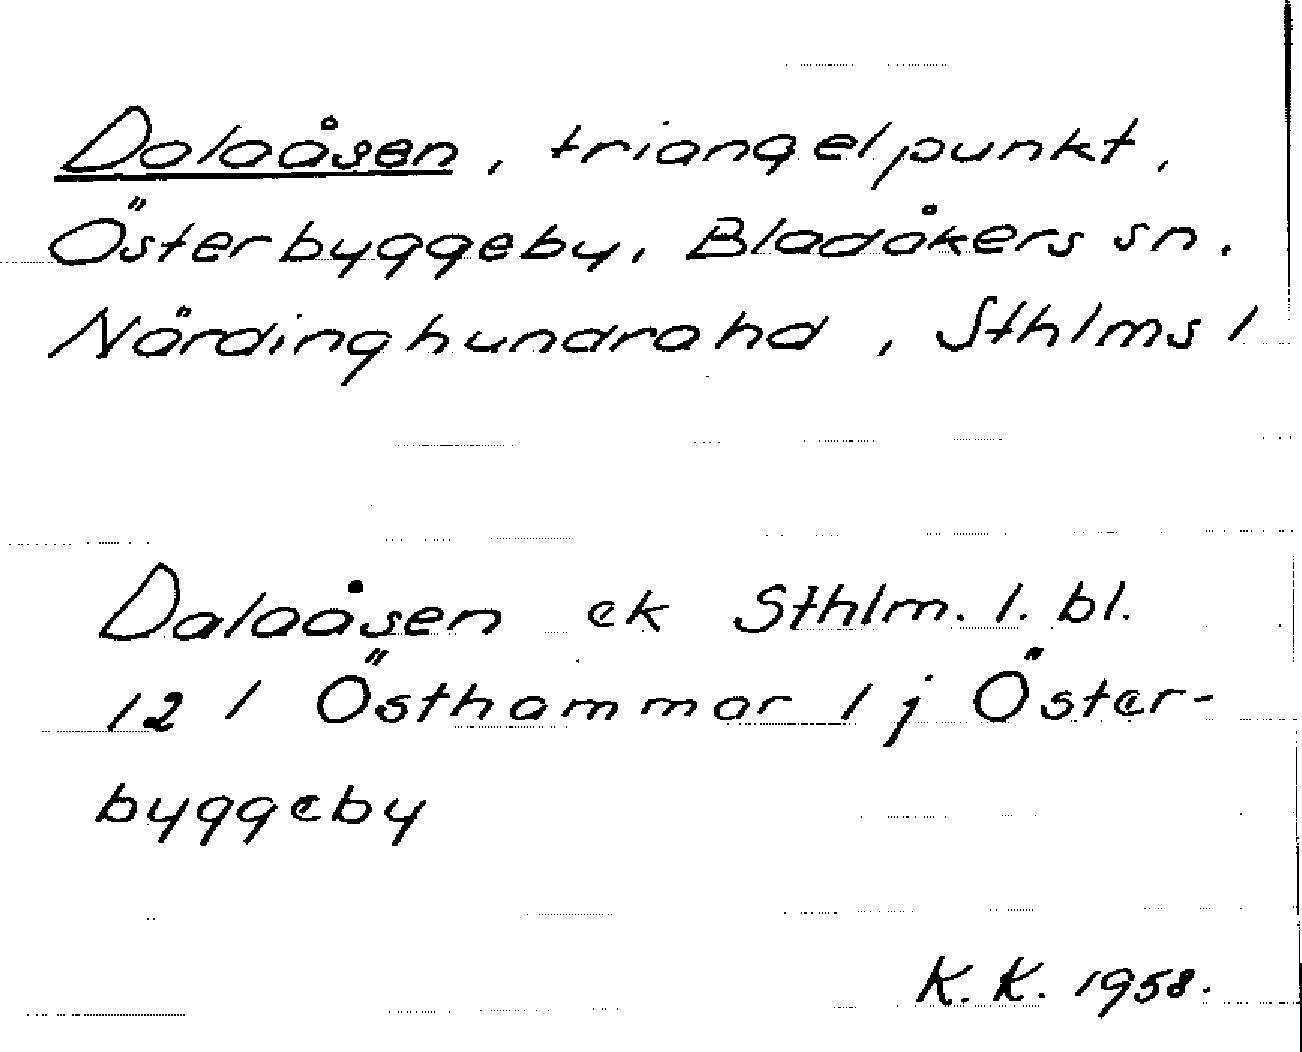 Dalaåsen, triangelpunkt,
Österbyggeby, Bladåkers sn.
Närdinghundrahd, Sthlms l
Dalaåsen ek Sthlm. l. bl.
12 / Östhammar / j Öster-
byggeby
K. K. 1958.